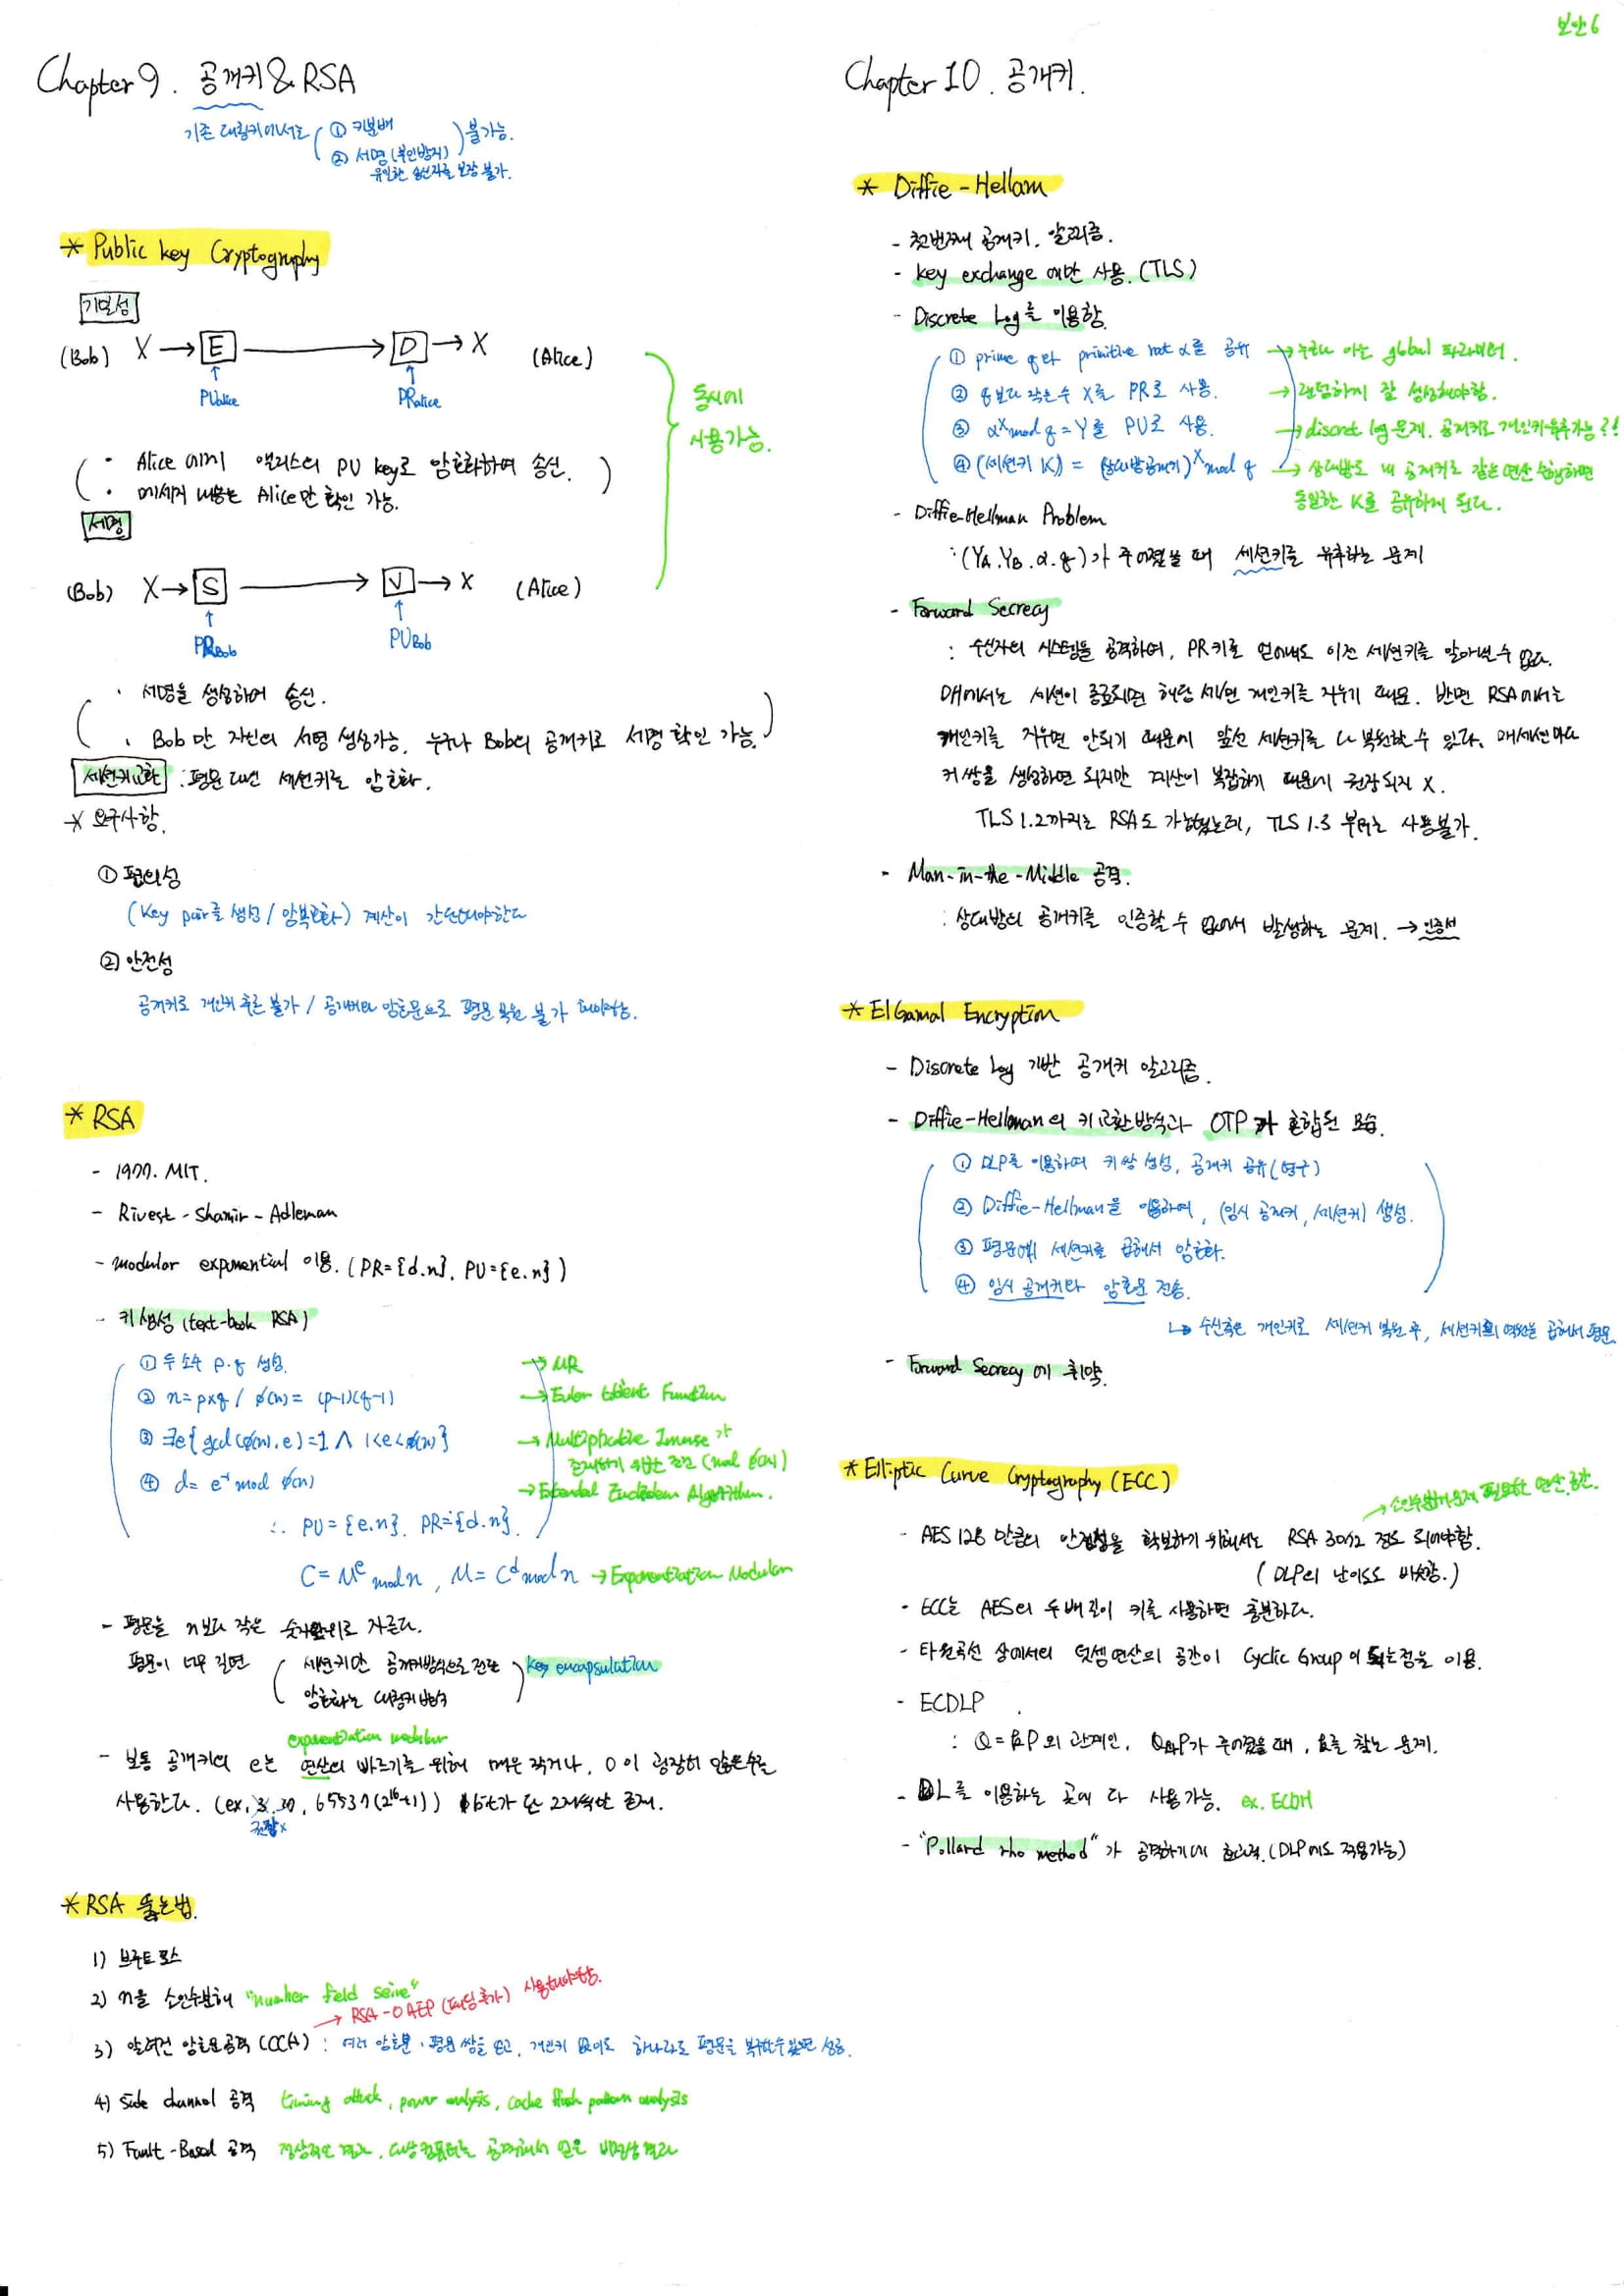 보안 6
Chapter 9. 공개키 & RSA
기존 대칭키에서는 ( ① 키분배
② 서명 (부인방지) ) 불가능.
유일한 송신자를 보장 불가.
* Public key Cryptography
기밀성
(Bob) X → E → D → X (Alice)
PUalice PRalice
· Alice 에게 앨리스의 PU key로 암호화하여 송신.
· 메세지 내용은 Alice만 확인 가능.
서명
(Bob) X → S → V → X (Alice)
PRBob PUBob
동시에
사용가능.
· 서명을 생성하여 송신.
· Bob만 자신의 서명 생성가능, 누구나 Bob의 공개키로 서명 확인 가능.
세션키교환 : 평문 대신 세션키를 암호화.
* 요구사항.
① 편의성
(key pair를 생성 / 암복호화) 계산이 간단해야한다
② 안전성
공개키로 개인키 추론 불가 / 공개키와 암호문으로 평문 복원 불가 해야함.
* RSA
- 1977. MIT.
- Rivest - Shamir - Adleman
- modular exponential 이용. (PR={d.n}. PU={e.n})
- 키생성 (text-book RSA)
① 두 소수 p.q 생성. → MR
② n=p×q / φ(n) = (p-1)(q-1) → Euler totient Function
③ ∃e{gcd(φ(n).e)=1 ∧ 1<e<φ(n)} → Multiplicative Inverse가
존재하기 위한 조건 (mod φ(n))
④ d= e⁻¹ mod φ(n) → Extended Euclidean Algorithm.
∴ PU={e.n}. PR={d.n}.
C = Mᵉ mod n , M = Cᵈ mod n → Exponentiation Modular
- 평문을 n보다 작은 숫자단위로 자른다.
평문이 너무 길면 ( 세션키만 공개키방식으로 전달
암호화는 대칭키방식 ) key encapsulation
exponentiation modular
- 보통 공개키의 e는 연산의 빠르기를 위해 매우 작거나, 0이 굉장히 많은수를
사용한다. (ex. 3. 17, 65537(2¹⁶+1)) 1bit가 단 2개씩만 존재.
권장x
* RSA 뚫는법.
1) 브루트포스
2) n을 소인수분해 "number field seive"
→ RSA-OAEP (패딩추가) 사용해야함.
3) 알려진 암호문공격 (CCA) : 여러 암호문, 평문 쌍을 얻고, 개인키 없이도 하나라도 평문을 복구할수있으면 성공.
4) Side channel 공격 timing attack, power analysis, cache flush pattern analysis
5) Fault-Based 공격 정상적인 결과, 대상컴퓨터를 공격해서 얻은 비정상결과
Chapter 10. 공개키.
* Diffie - Hellam
- 첫번째 공개키. 알고리즘.
- key exchange 에만 사용. (TLS)
- Discrete Log를 이용함.
① prime q와 primitive root α를 공유 → 누구나 아는 global 파라미터.
② q보다 작은수 X를 PR로 사용. → 랜덤하게 잘 생성해야함.
③ αˣ mod q = Y를 PU로 사용. → discret log 문제. 공개키로 개인키유추가능?!
④ (세션키 K) = (상대방공개키)ˣ mod q → 상대방도 내 공개키로 같은 연산 수행하면
동일한 K를 공유하게 된다.
- Diffie-Hellman Problem
: (YA.YB.α.q)가 주어졌을 때 세션키를 유추하는 문제
- Forward Secrecy
: 수신자의 시스템을 공격하여, PR키를 얻어내도 이전 세션키를 알아낼수 없다.
DH에서는 세션이 종료되면 해당 세션 개인키를 지우기 때문. 반면 RSA에서는
개인키를 지우면 안되기 때문에 앞선 세션키를 다 복원할 수 있다. 매세션마다
키 쌍을 생성하면 되지만 계산이 복잡하기 때문에 권장되지 X.
TLS 1.2까지는 RSA도 가능했는데, TLS 1.3 부터는 사용불가.
- Man-in-the-Middle 공격.
: 상대방의 공개키를 인증할 수 없어서 발생하는 문제. → 인증서
* ElGamal Encryption
- Discrete Log 기반 공개키 알고리즘.
- Diffie-Hellman의 키교환방식과 OTP가 혼합된 모습.
① DLP를 이용하여 키쌍 생성, 공개키 공유(영구)
② Diffie-Hellman을 이용하여, (임시 공개키, 세션키) 생성.
③ 평문에 세션키를 곱해서 암호화.
④ 임시 공개키와 암호문 전송.
↳ 수신측은 개인키로 세션키 복원 후, 세션키의 역원을 곱해서 평문.
- Forward Secrecy 에 취약.
* Elliptic Curve Cryptography (ECC)
→ 소인수분해문제 필요한 연산.공간.
- AES 128 만큼의 안전성을 확보하기 위해서는 RSA 3072 정도 되어야함.
(DLP의 난이도도 비슷함.)
- ECC는 AES의 두배 길이 키를 사용하면 충분하다.
- 타원곡선 상에서의 덧셈연산의 공간이 Cyclic Group이 되는점을 이용.
- ECDLP
: Q=kP의 관계인, Q와P가 주어졌을 때, k를 찾는 문제.
- DL를 이용하는 곳에 다 사용가능. ex. ECDH
- "Pollard rho method"가 공격하기에 효과적. (DLP에도 적용가능)